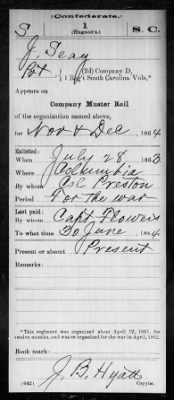 Confederate.
S 1 S. C.
(Hagood's)
J. Seay
Pvt, (2d) Company D,
1 Reg't South Carolina Vols.*
Appears on
Company Muster Roll
of the organization named above,
for Nov & Dec, 1864
Enlisted:
When July 28 1863
Where Columbia
By whom Col Preston
Period For the war
Last paid:
By whom Capt Flowers
To what time 30 June, 1864
Present or absent Present
Remarks:
*This regiment was organized about April 12, 1861, for
twelve months, and was organized for the war in April, 1862.
Book mark:
J. B. Hyatt
(642) Copyist.